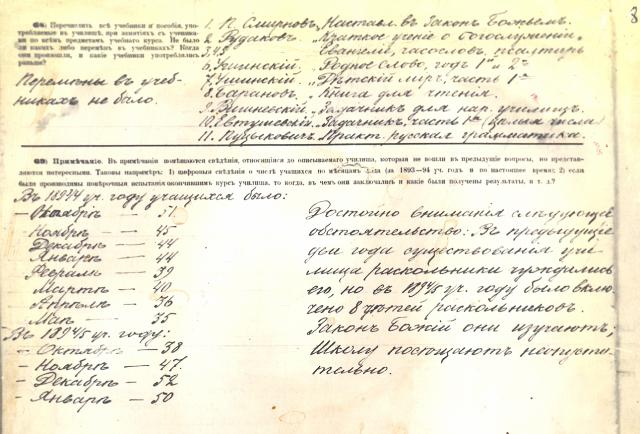 3
68) Перечислить всѣ учебники и пособія, употребляемые въ училищѣ, при занятіяхъ съ учениками по всѣмъ предметамъ учебнаго курса. Не было ли какихъ либо перемѣнъ въ учебникахъ? Когда они произошли, и какіе учебники употреблялись раньше?
Перемѣны въ учеб-
никахъ не было.
1. П. Смирновъ, „Наставл. въ Законѣ Божьемъ.
2. Рудаковъ. „Краткое ученіе о богослуженіи"
3.4.5 Евангеліе, часословъ, псалтирь
6. Ушинскій. Родное слово, годъ 1й и 2й
7. Ушинскій. „Дѣтскій міръ", часть 1я
8. Барановъ. „Книга для чтенія.
9. Вишневскій „Задачникъ для нар. училищъ.
10. Евтушевскій „Задачникъ, часть 1я (цѣлыя числа)
11. Пуцыковичъ. „Практ. русская грамматика.
69) Примѣчаніе. Въ примѣчаніи помѣщаются свѣдѣнія, относящіяся до описываемаго училища, которыя не вошли въ предыдущіе вопросы, но представ-
ляются интересными. Таковы напримѣръ: 1) цифровыя свѣдѣнія о числѣ учащихся по мѣсяцамъ года (за 1893—94 уч. годъ и по настоящее время; 2) если
были произведены повѣрочныя испытанія окончившимъ курсъ училища, то когда, въ чемъ они заключались и какіе были получены результаты, и т. д.?
Въ 1893/4 уч. году учащихся было:
— Октябрь — 51
Ноябрь — 45
Декабрь — 44
Январь — 44
Февраль — 39
Мартъ — 40
Апрѣль — 36
Май — 35
Въ 1894/5 уч. году:
— Октябрь — 38
— Ноябрь — 47.
— Декабрь — 52
— Январь — 50
Достойно вниманія слѣдующее
обстоятельство: Въ предыдущіе
годы существованія учи-
лища раскольники чуждались
его, но въ 1894/5 уч. году было вклю-
чено 8 дѣтей раскольниковъ.
Законъ Божій они изучаютъ;
Школу посѣщаютъ неопусти-
тельно.